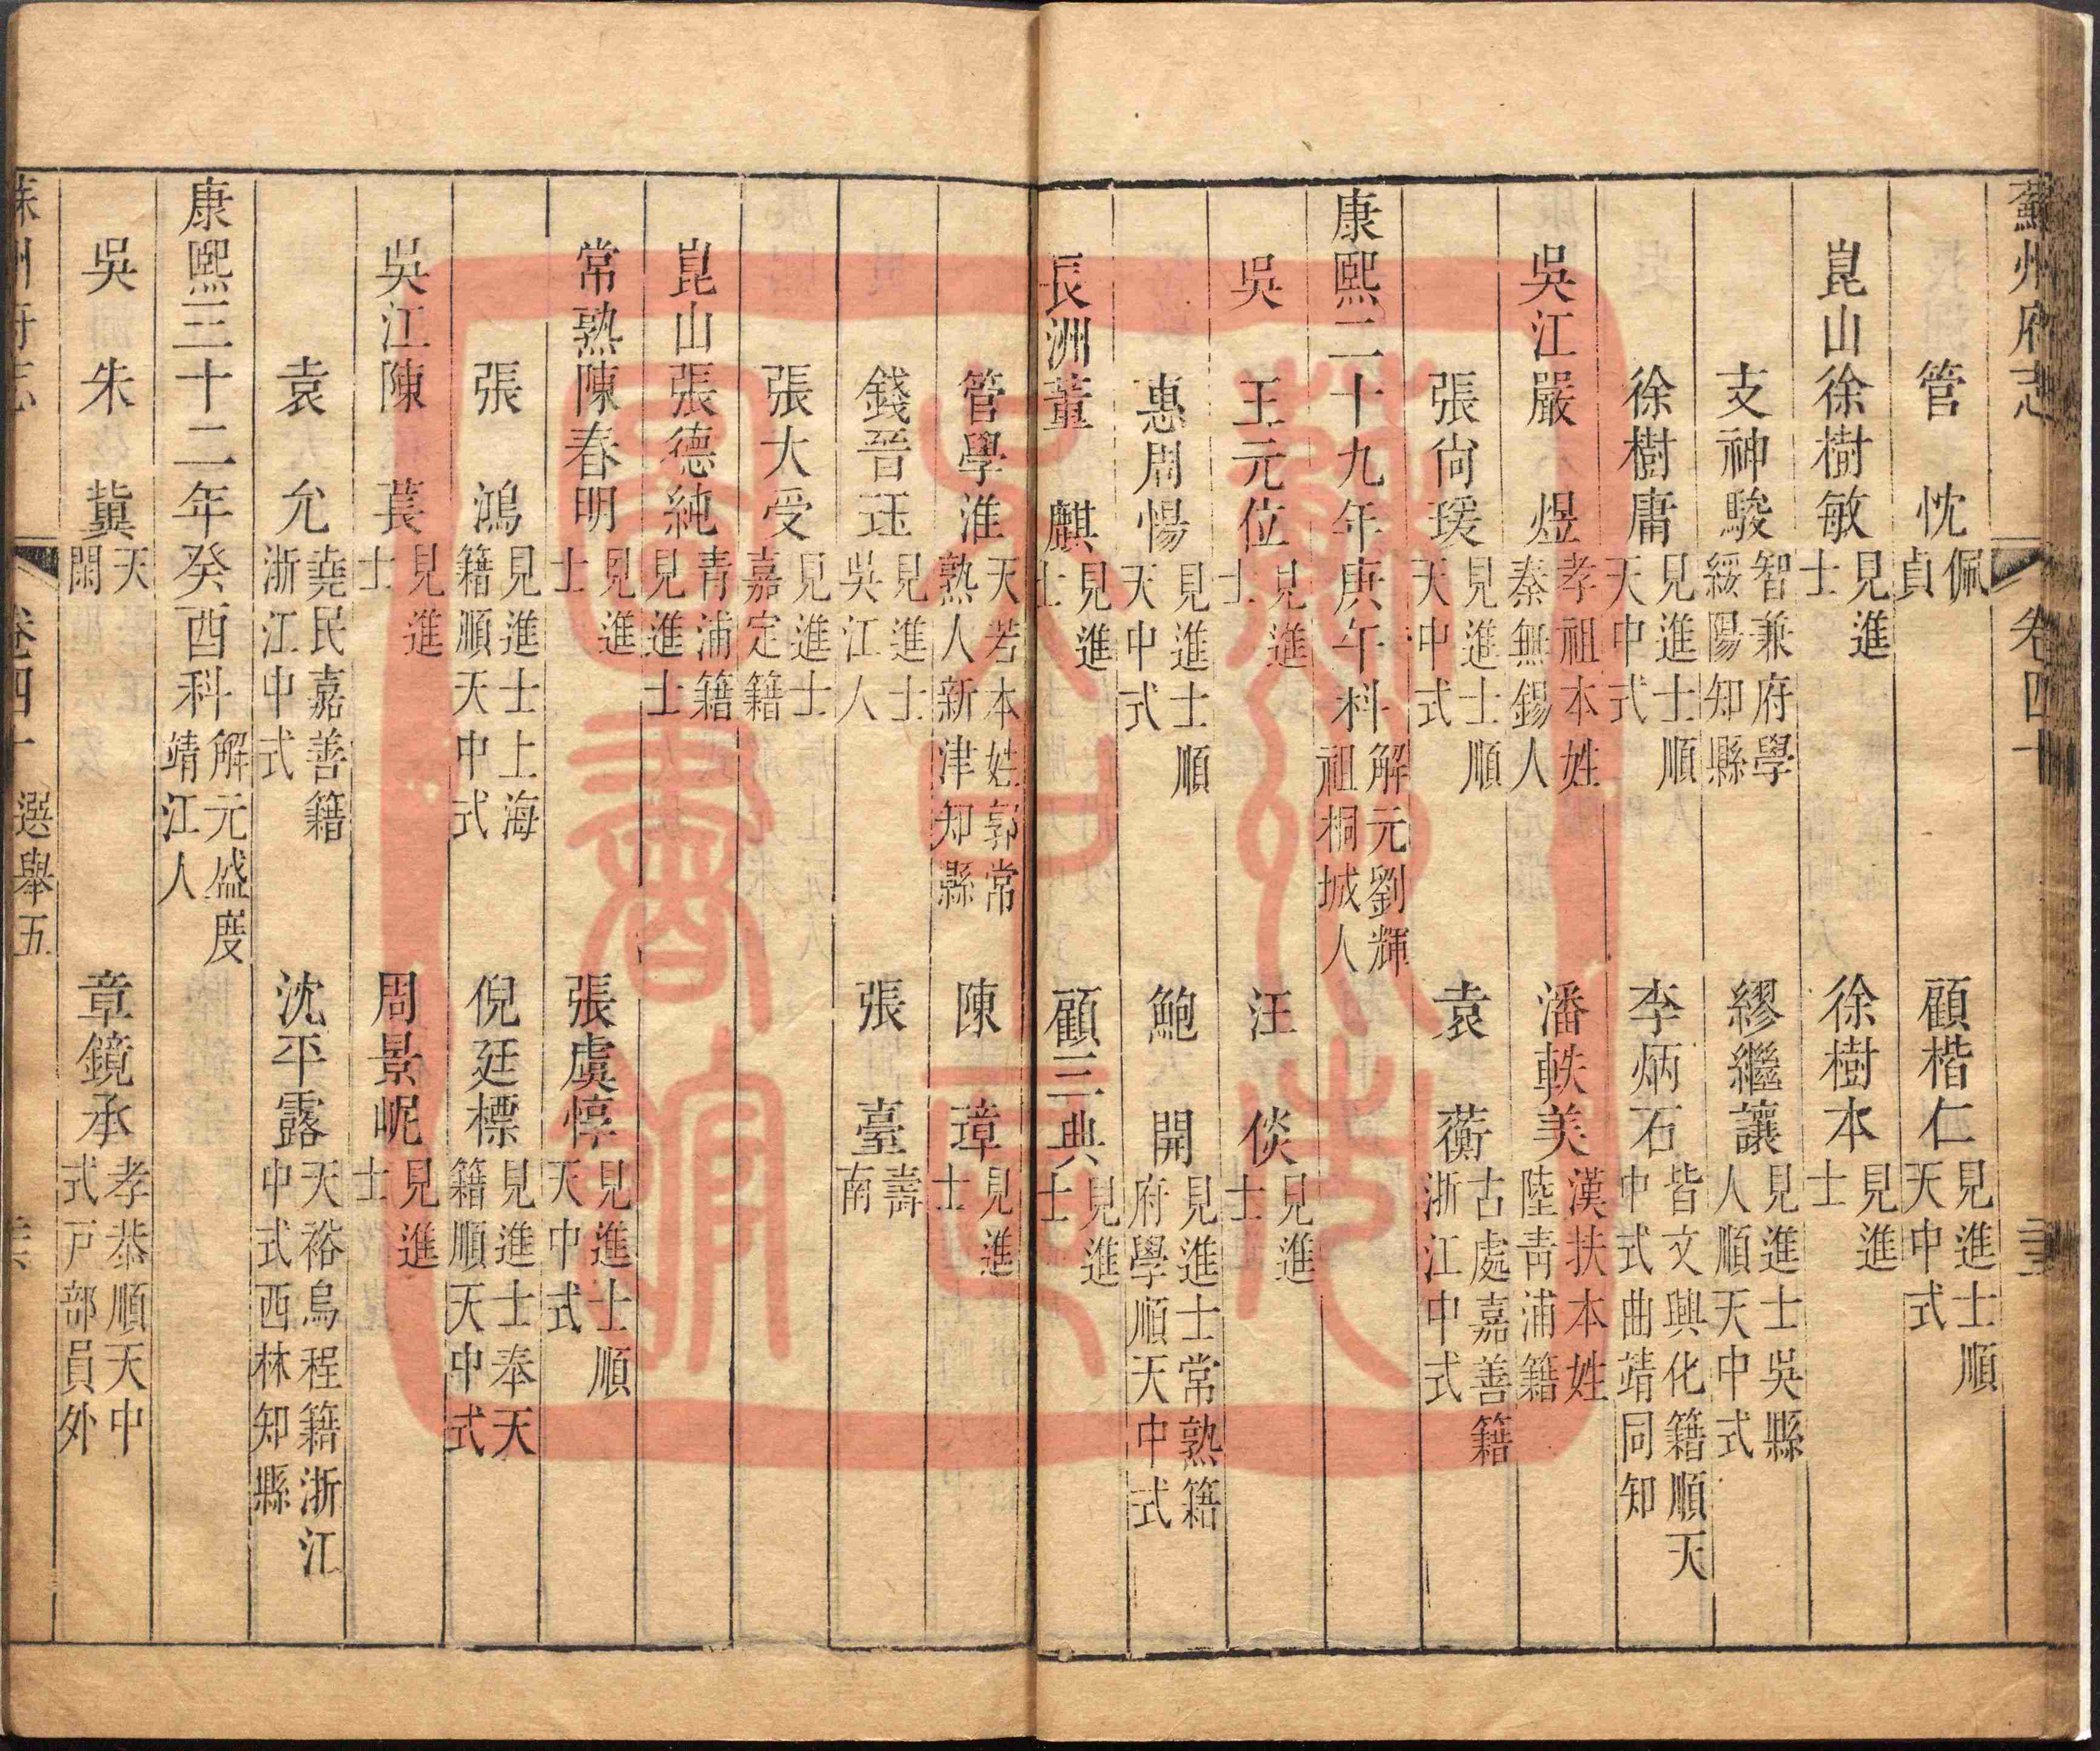 蘇州府志 卷四十
管忱 佩貞 顧楷仁 見進士順天中式
崑山徐樹敏 見進士 徐樹本 見進士
支神駿 智兼府學綏陽知縣 繆繼讓 見進士吳縣人順天中式
徐樹庸 見進士順天中式 李炳石 皆文興化籍順天中式曲靖同知
吳江嚴煜 孝祖本姓秦無錫人 潘軼美 漢扶本姓陸青浦籍
張尙瑗 見進士順天中式 袁蘅 古處嘉善籍浙江中式
康熙二十九年庚午科 解元劉輝祖桐城人
吳 王元位 見進士 汪倓 見進士
惠周惕 見進士順天中式 鮑開 見進士常熟籍府學順天中式
長洲董麒 見進士 顧三典 見進士
管學淮 天若本姓郭常熟人新津知縣 陳璋 見進士
錢晉珏 見進士吳江人 張臺 壽南
張大受 見進士嘉定籍
崑山張德純 靑浦籍見進士
常熟陳春明 見進士 張虞惇 見進士順天中式
張鴻 見進士上海籍順天中式 倪廷標 見進士奉天籍順天中式
吳江陳萇 見進士 周景岷 見進士
袁允 堯民嘉善籍浙江中式 沈平露 天裕烏程籍浙江中式西林知縣
康熙三十二年癸酉科 解元盛度靖江人
吳 朱蓂 天閑 章鏡承 孝恭順天中式戸部員外
蘇州府志 卷四十 選舉五